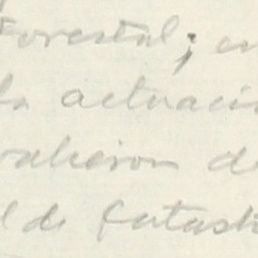 Forestal; en
la actuació
valieron de
l de Catast